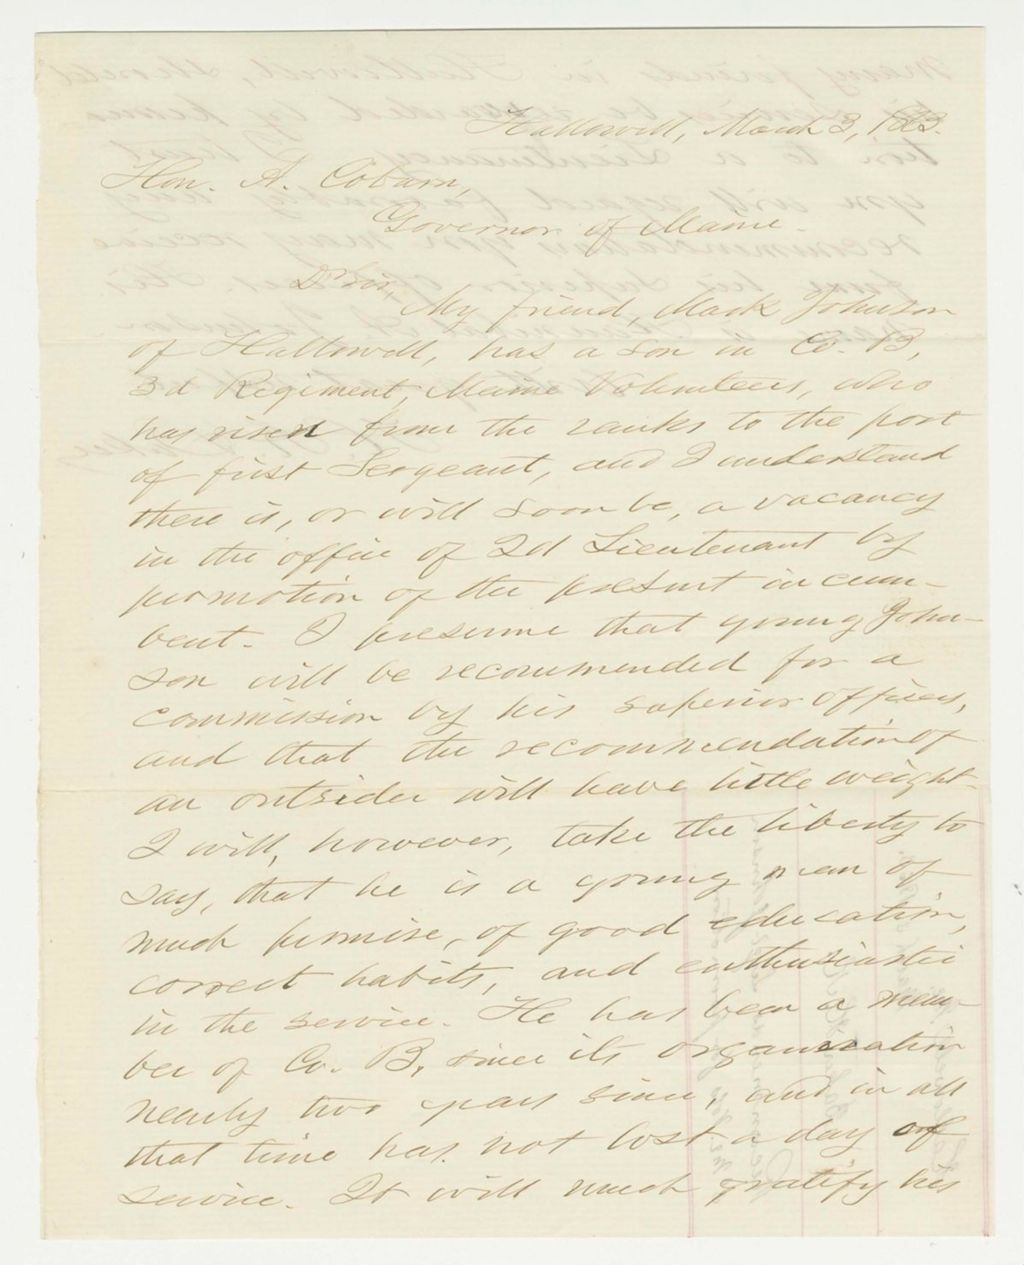 Hallowell, March 3, 1863.
Hon. A. Coburn,
Governor of Maine
Dr Sir,
My friend, Mark Johnson
of Hallowell, has a son in Co. B,
3d Regiment, Maine Volunteers, who
has risen from the ranks to the post
of first Sergeant, and I understand
there is, or will soon be, a vacancy
in the office of 2d Lieutenant by
promotion of the present incum-
bent. I presume that young John-
son will be recommended for a
commission by his superior officers,
and that the recommendation of
an outsider will have little weight.
I will, however, take the liberty to
say, that he is a young man of
much promise, of good education,
correct habits, and enthusiastic
in the service. He has been a mem-
ber of Co. B, since its organization
nearly two years since, and in all
that time has not lost a day of
service. It will much gratify his